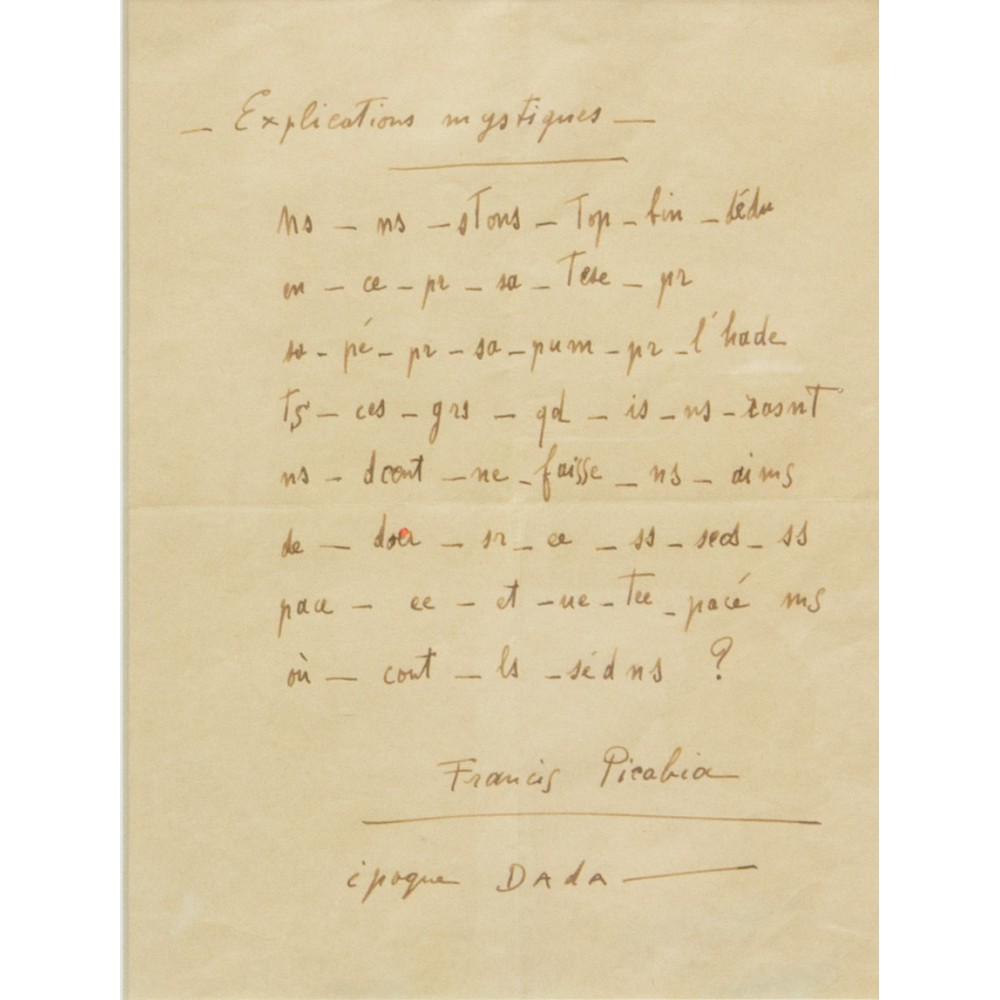 — Explications mystiques —
Ns — ns — stons — Top — bin — dédu
en — ce — pr — sa — Tese — pr
sa — pé — pr — sa — pum — pr — l'hade
Ts — ces — grs — qd — is — ns — zosnt
ns — dcont — ne — faisse — ns — aims
de — — sr — ce — ss — secd — ss
pace — ce — et — ne — Tee — pacé ms
où — cont — ls — sédns ?
Francis Picabia
époque DAdA —